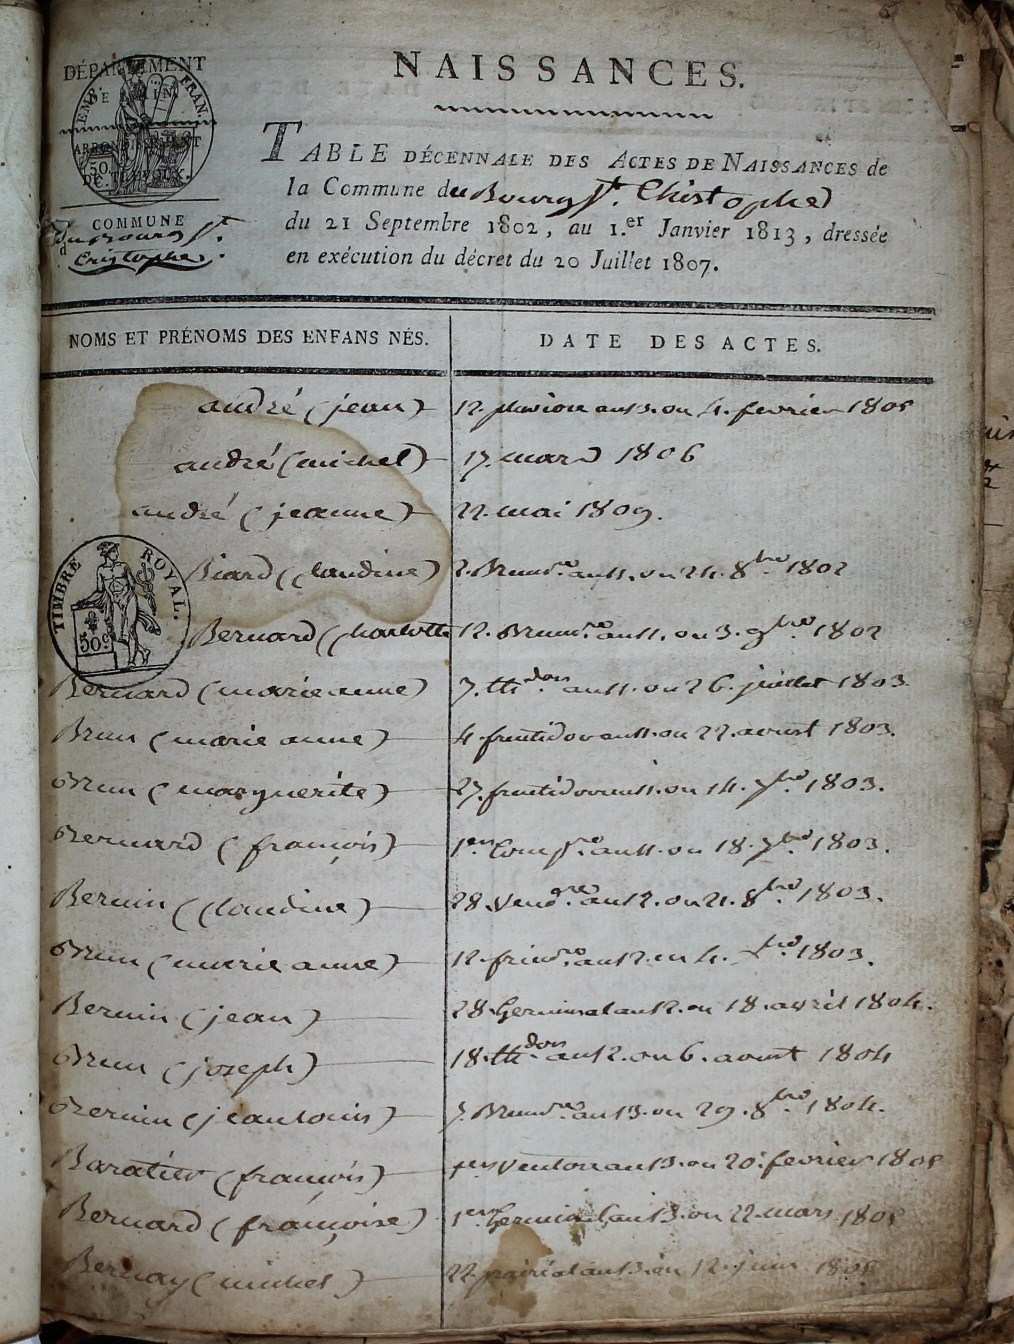 DÉPARTEMENT
DE L'AIN
EMP. FRAN.
ARRONDISSEMENT
50 C.
DE TRÉVOUX.
COMMUNE
du Bourg St.
d Cristophe.
NAISSANCES.
TABLE DÉCENNALE DES ACTES DE NAISSANCES de
la Commune du Bourg St. Christophe
du 21 Septembre 1802, au 1.er Janvier 1813, dressée
en exécution du décret du 20 Juillet 1807.
NOMS ET PRÉNOMS DES ENFANS NÉS. DATE DES ACTES.
andré (jean) 12. pluviose an 13. ou 4. fevrier 1805
andré (michel) 17. mars 1806
andré (jeanne) 22. mai 1809.
TIMBRE ROYAL.
50 c.
Biard (Claudine) 2. Brum.re an 11. ou 24. 8bre 1802
Bernard (Charlotte 12. Brum.re an 11. ou 3. 9bre 1802
Bernard (marie anne) 7. thdor. an 11. ou 26. juillet 1803
Brun (marie anne) 4. fructidor an 11. ou 22. aoust 1803.
Brun (marguerite) 27. fructidor an 11. ou 14. 7bre 1803.
Bernard (françois) 1er. Comp.re an 11. ou 18. 7bre 1803.
Bernin (Claudine) 28. Vend.re an 12. ou 21. 8bre 1803.
Brun (marie anne) 12. frim.re an 12. ou 4. bre 1803.
Bernin (jean) 28. Germinal an 12. ou 18. avril 1804.
Brun (joseph) 18. thdor. an 12. ou 6. aoust 1804
Bernin (jean louis) 7. Brum.re an 13. ou 29. 8bre 1804.
Baratier (françois) 1er Ventose an 13. ou 20. fevrier 1805
Bernard (françoise) 1er. Germinal an 13. ou 22. mars 1805
Bernay (michel) 22. pairial an 13. ou 12. juin 1805